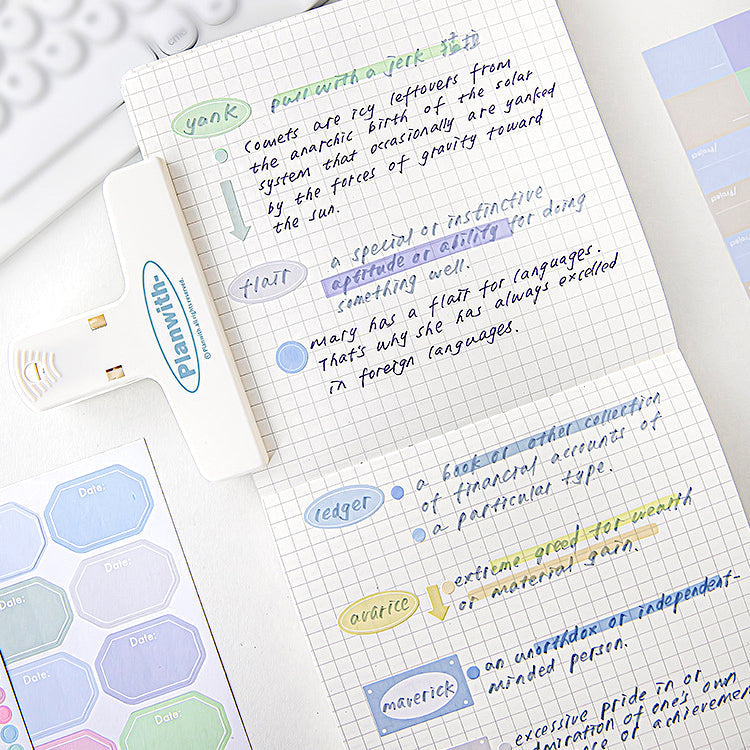 cmd
yank
pull with a jerk 猛拉
Comets are icy leftovers from
the anarchic birth of the solar
system that occasionally are yanked
by the forces of gravity toward
the sun.
flair
a special or instinctive
aptitude or ability for doing
something well.
Mary has a flair for languages.
That's why she has always excelled
in foreign languages.
Planwith-
ledger
a book or other collection
of financial accounts of
a particular type.
avarice
extreme greed for wealth
or material gain.
maverick
an unorthdox or independent-
minded person.
excessive pride in or
admiration of one's own
or achievemen
Date:
Date:
Date:
Date:
Date:
Date:
/Project
/Project
/Project